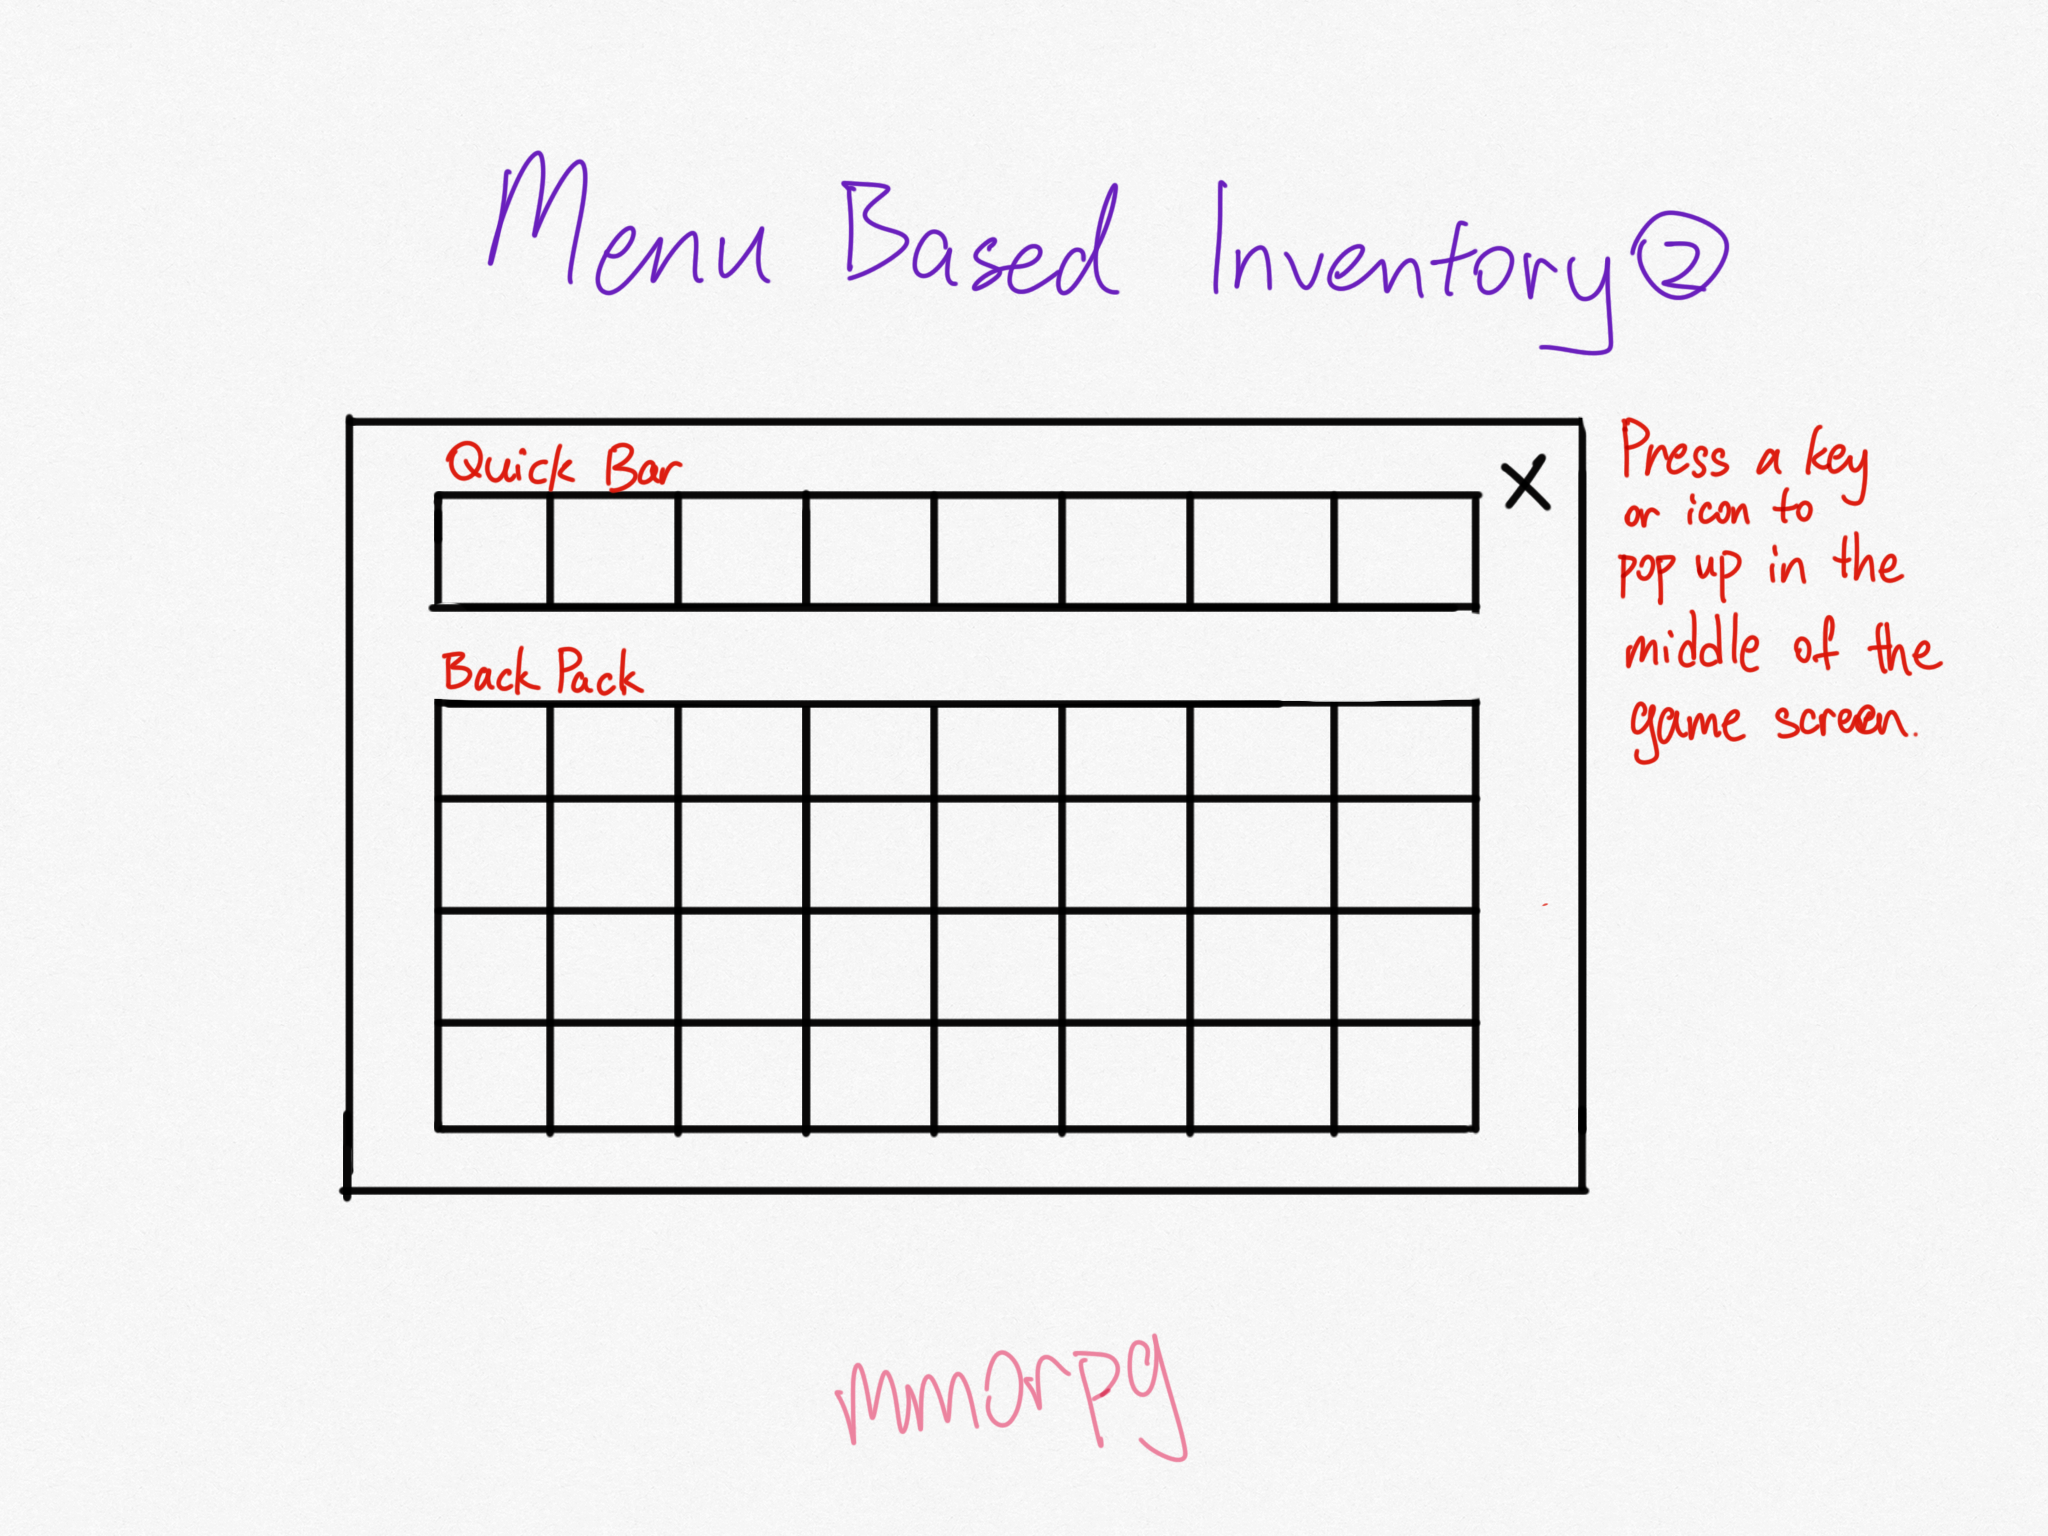 Menu Based Inventory ②
Quick Bar
X
Back Pack
Press a key
or icon to
pop up in the
middle of the
game screen.
mmorpg